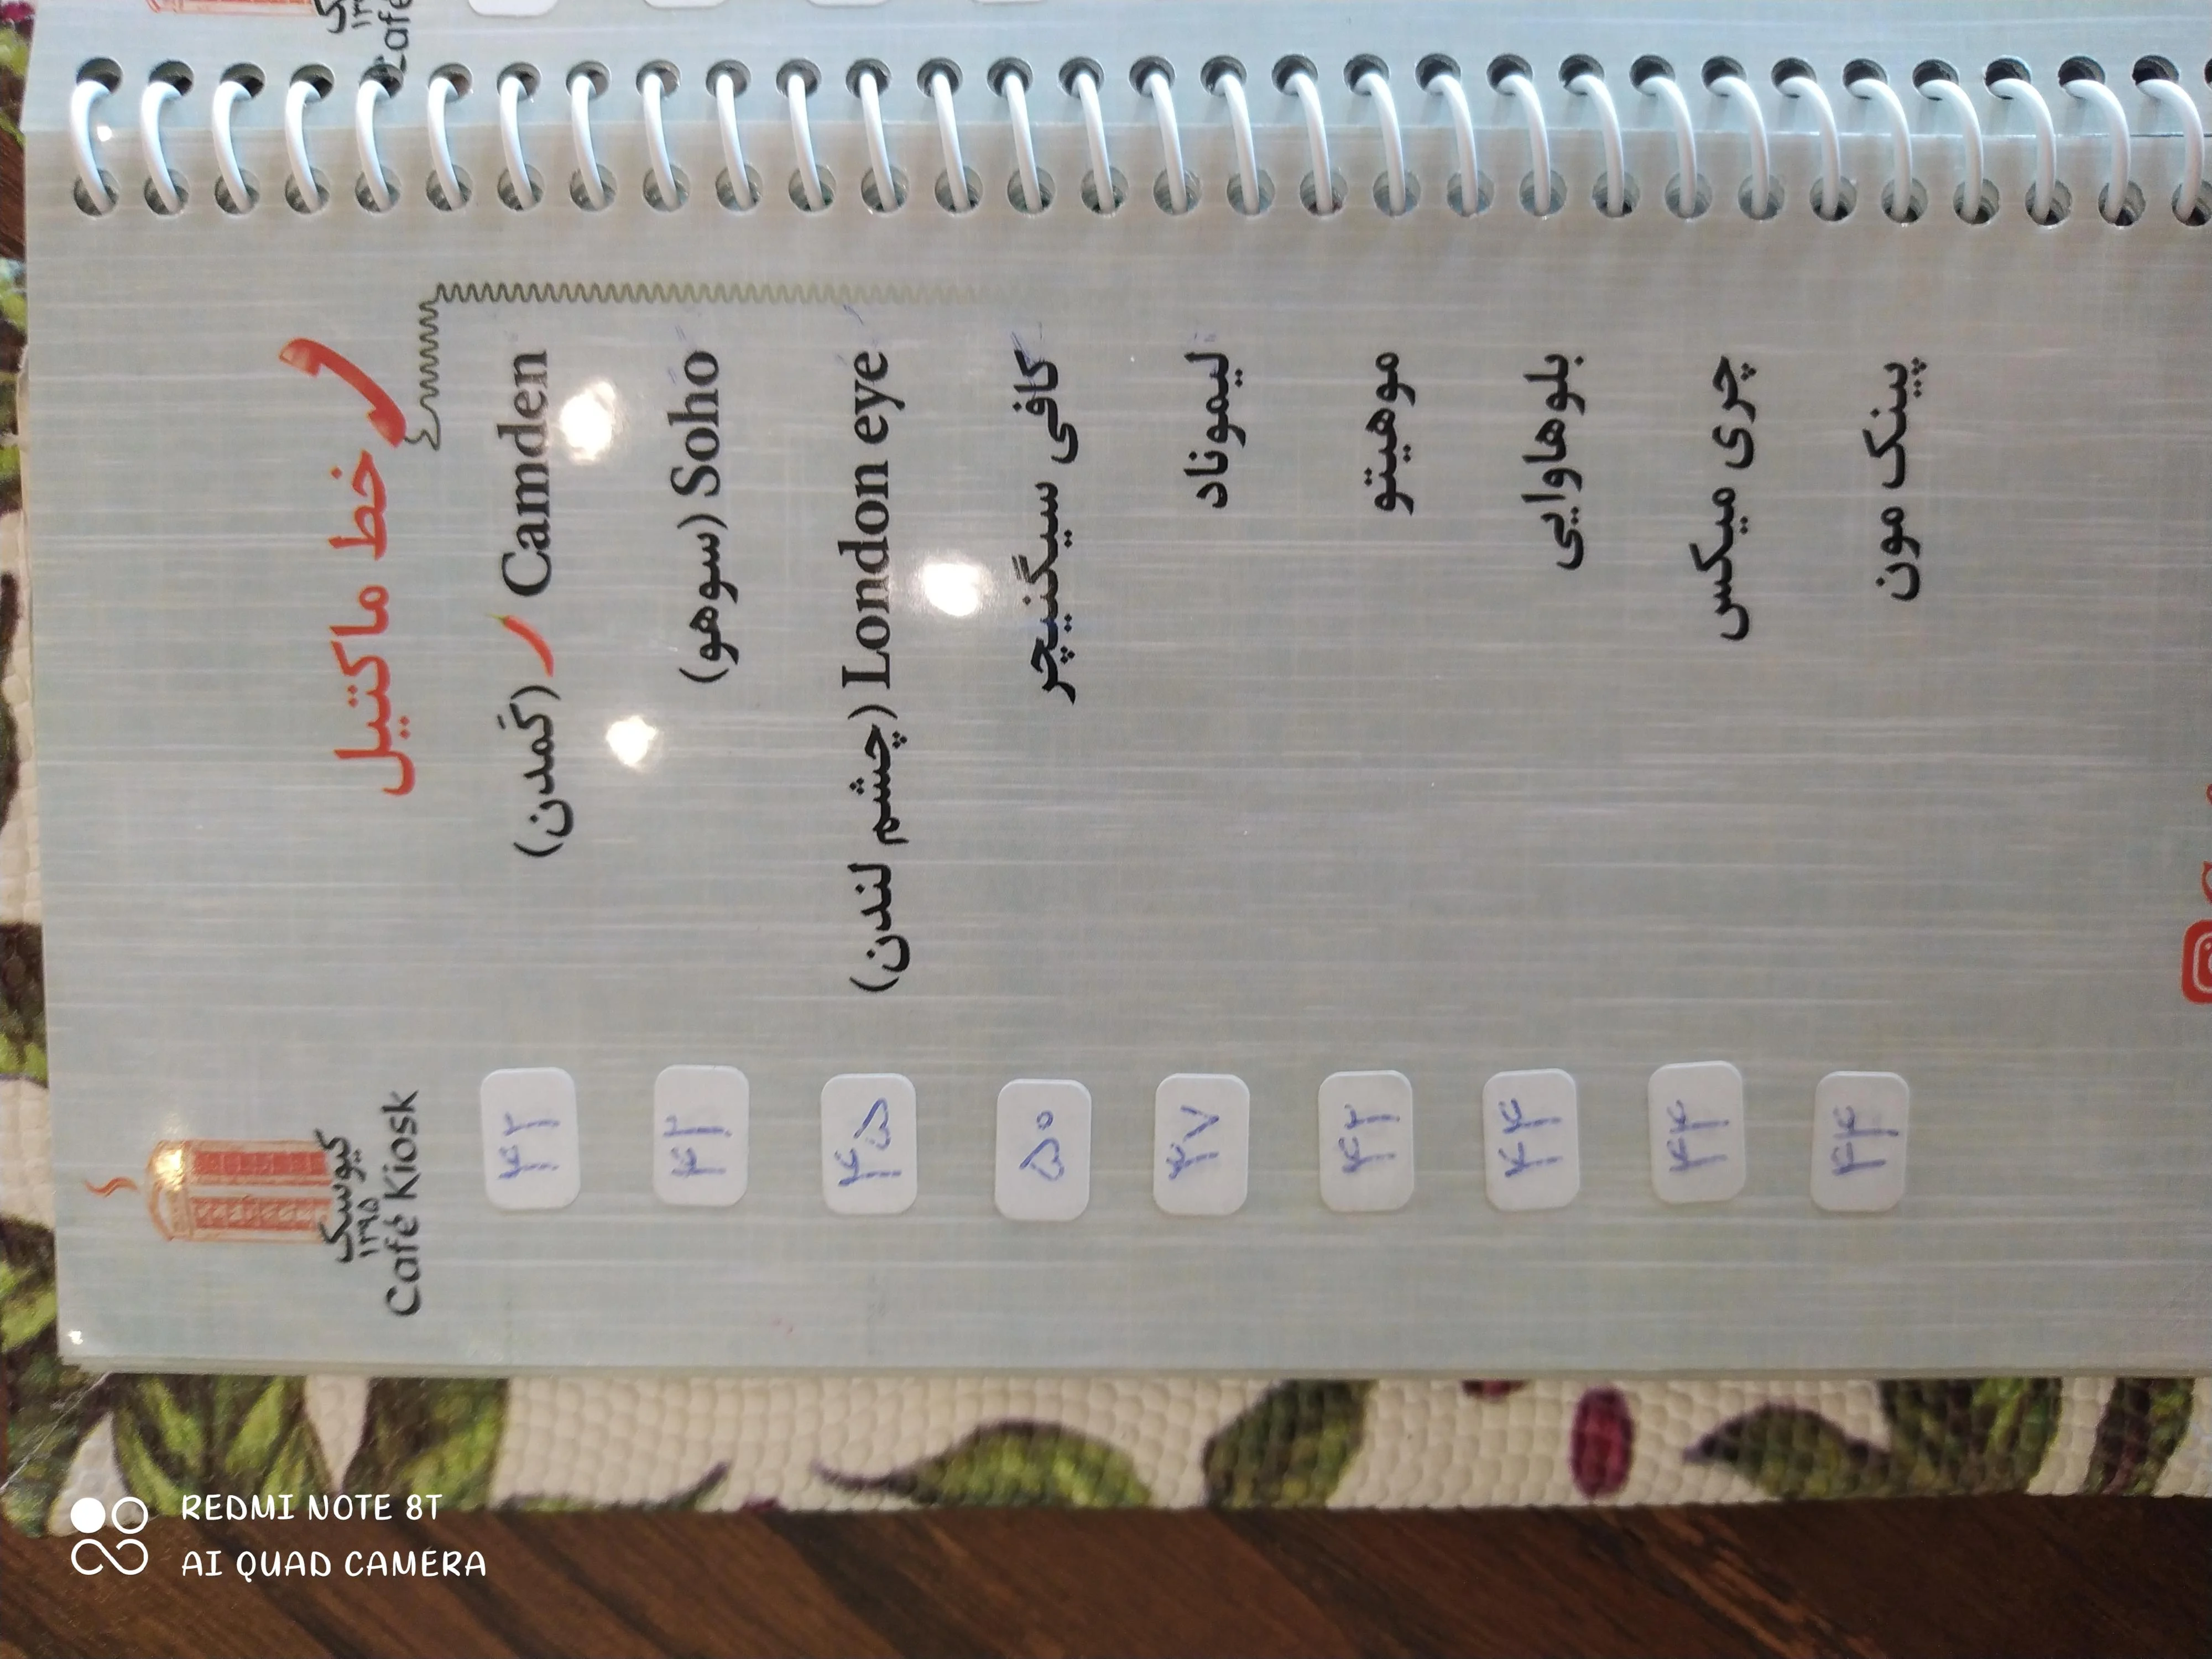 کیوسک
۱۳۹۵
Café Kiosk
خط ماکتیل
Camden (کَمدن) ۴۲
Soho (سوهو) ۴۲
London eye (چشم لندن) ۴۵
کافی سیگنیچر ۵۰
لیموناد
موهیتو ۴۲
بلوهاوایی ۴۴
چری میکس ۴۴
پینک مون ۴۴
REDMI NOTE 8T
AI QUAD CAMERA